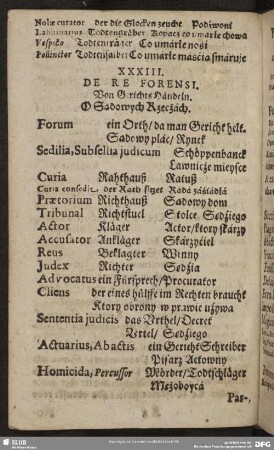 Nolæ curator der die Glocken zeucht Podzwoni
Todtengräber Kopacz co umarłe chowa
Vespillo Todtenträger Co umarłe nosi
Pollinctor Todtensalber Co umarłe maścia smaruje
XXXIII.
DE RE FORENSI.
Von Gerichts Händeln.
O Sadowych Rzeczách.
Forum ein Orth/ da man Gericht helt.
Sadowy plác/ Rynek
Sedilia, Subsellia judicum Schöppenbanck
Láwnicze mieysce
Curia Rahthauß Ratuß
Curia consedit der Rath sitzet Radá záśiádłá
Prætorium Richthauß Sadowy dom
Tribunal Richtstuel Stolec Sedźiego
Actor Kläger Actor/ktory skárzy
Accusator Ankläger Skárzyćiel
Reus Beklagter Winny
Judex Richter Sedźia
Advocatus ein Fürsprech/Procurator
Cliens der eines hülffe im Rechten braucht
Ktory obrony w prawie używa
Sententia judicis das Urthel/Decret
Urtel/ Sedźiego
Actuarius, Abactis ein Gericht Schreiber
Pisarz Actowny
Homicida, Percussor Mörder/Todtschläger
Mężoboycá
Par-,
SLUB